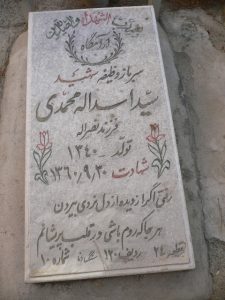 بهدیٰ الشهداء والصدیقین
آرامگاه
سرباز وظیفه شهید
سید اسداله محمدی
فرزند نصراله
تولد ۱۳۴۰
شهادت ۱۳۶۰/۹/۳۰
رفتی اگر از دیده از دل نروی بیرون
هر جا که روم باشی در قلب پریشانم
قطعه ۲۴ ردیف ۱۲۰ شماره ۱۰